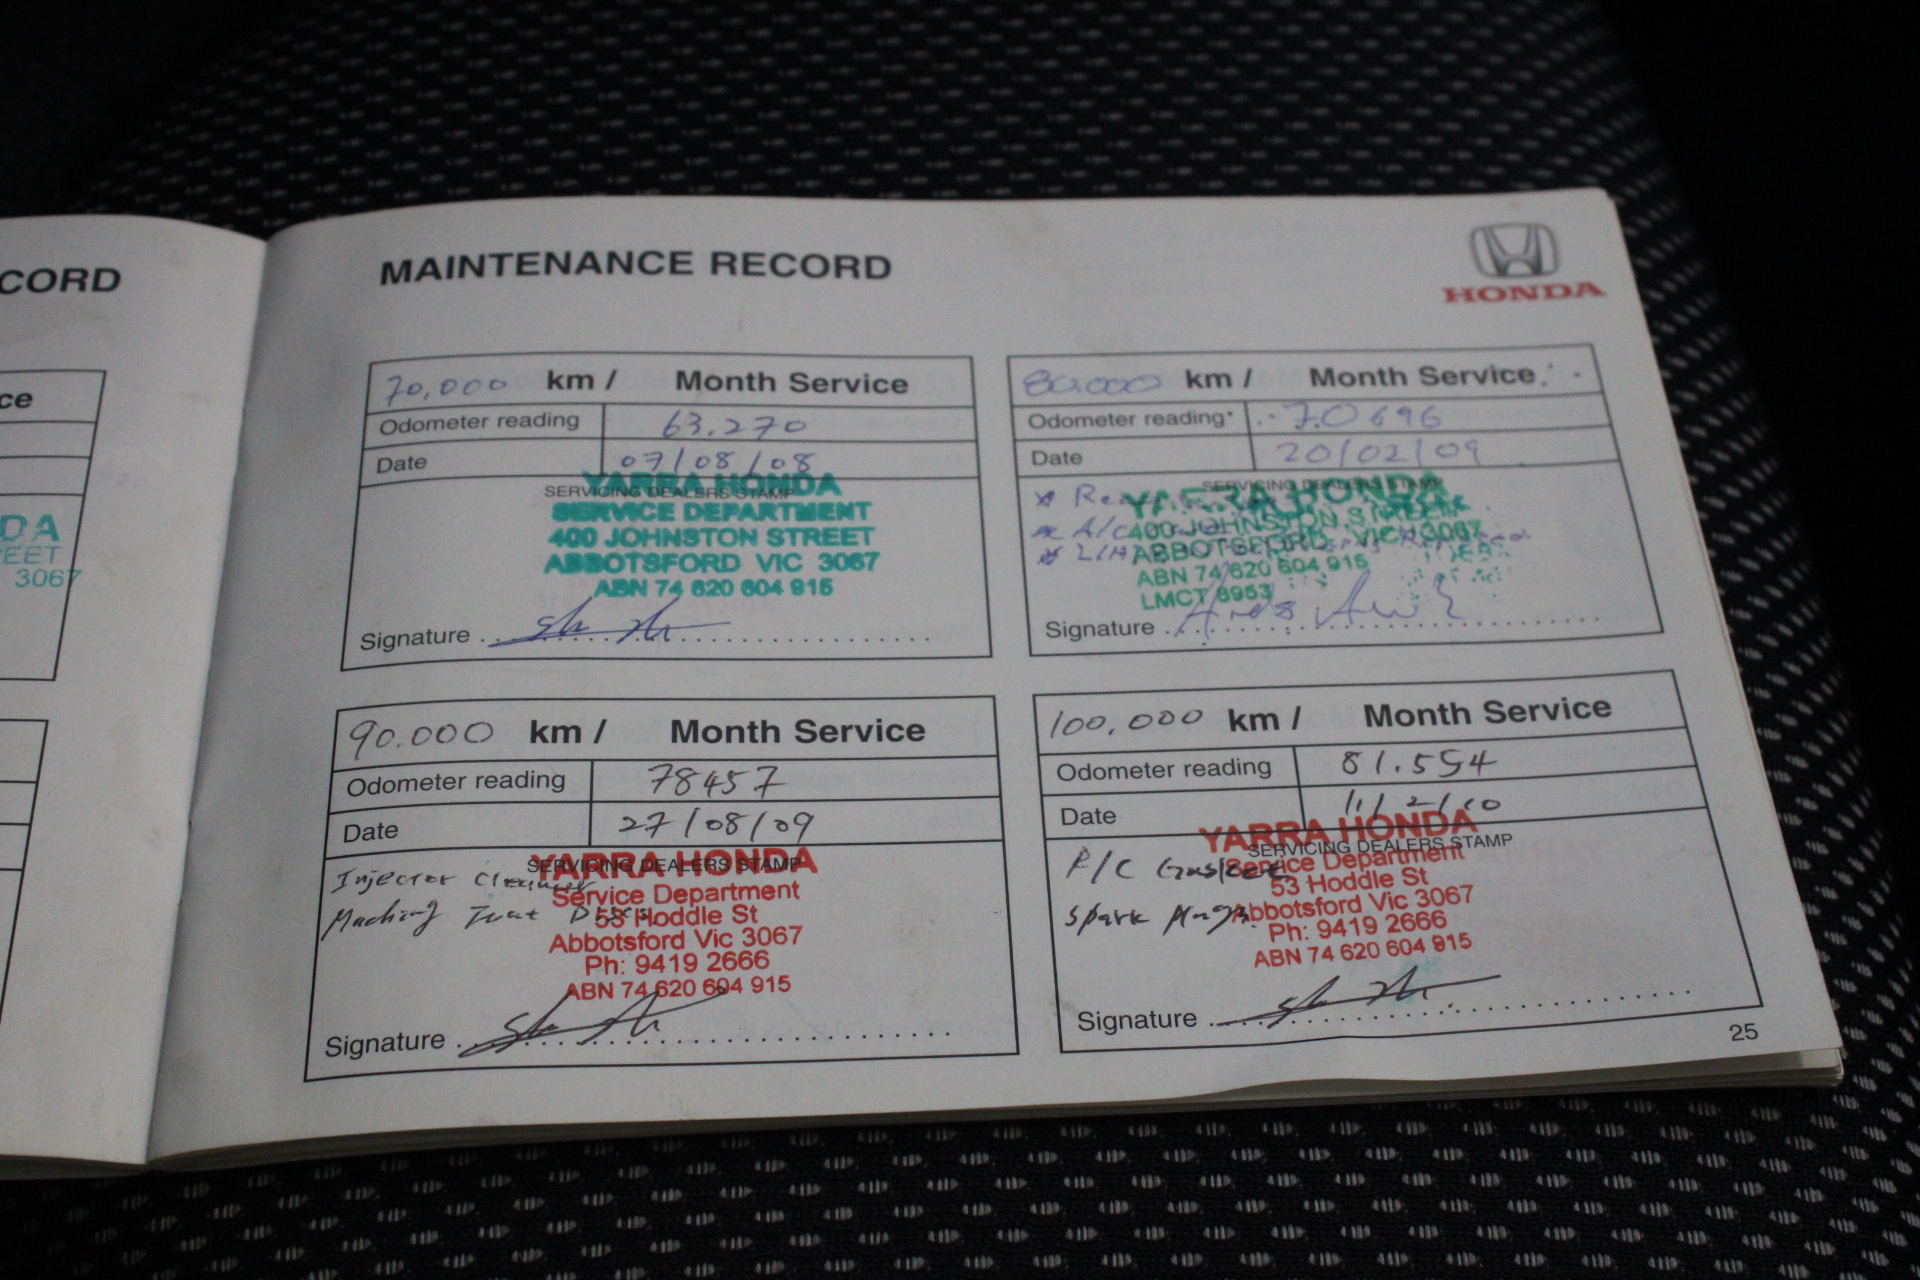 CORD
ce
DA
EET
3067
MAINTENANCE RECORD
HONDA
70,000 km / Month Service
Odometer reading 63,270
Date 07/08/08
SERVICING DEALERS STAMP
YARRA HONDA
SERVICE DEPARTMENT
400 JOHNSTON STREET
ABBOTSFORD VIC 3067
ABN 74 620 604 915
Signature
80,000 km / Month Service
Odometer reading 70696
Date 20/02/09
SERVICING DEALERS STAMP
YARRA HONDA
400 JOHNSTON STREET
ABBOTSFORD, VIC 3067
ABN 74 620 604 915
LMCT 8953
* A/C
Signature
90.000 km / Month Service
Odometer reading 78457
Date 27/08/09
SERVICING DEALERS STAMP
YARRA HONDA
Injector Cleaner
Service Department
53 Hoddle St
Abbotsford Vic 3067
Ph: 9419 2666
ABN 74 620 604 915
Signature
100,000 km / Month Service
Odometer reading 81.554
Date 11/2/10
YARRA HONDA
SERVICING DEALERS STAMP
R/C Gasket
Service Department
53 Hoddle St
Spark plugs
Abbotsford Vic 3067
Ph: 9419 2666
ABN 74 620 604 915
Signature
25